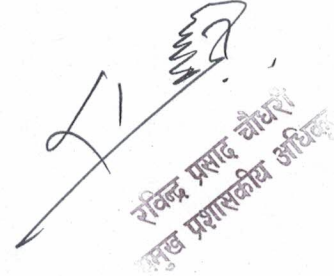 रविन्द्र प्रसाद चौधरी
प्रमुख प्रशासकीय